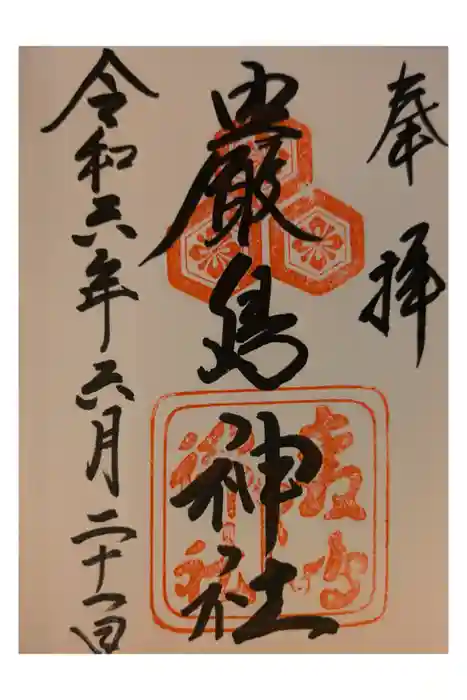 奉拝
厳島神社
令和六年六月二十一日